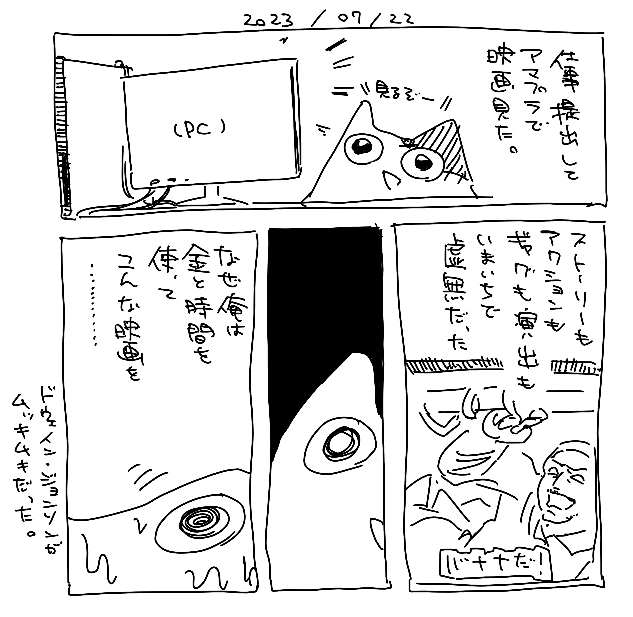 2023/07/22
仕事提出して
アマプラで
映画見た。
見るぞー
(PC)
ストーリーも
アクションも
ギャグも演出も
いまいちで
虚無だった
バナナだ!
なぜ俺は
金と時間を
使って
こんな映画を
………
ドウェイン・ジョンソンが
ムッキムキだった。